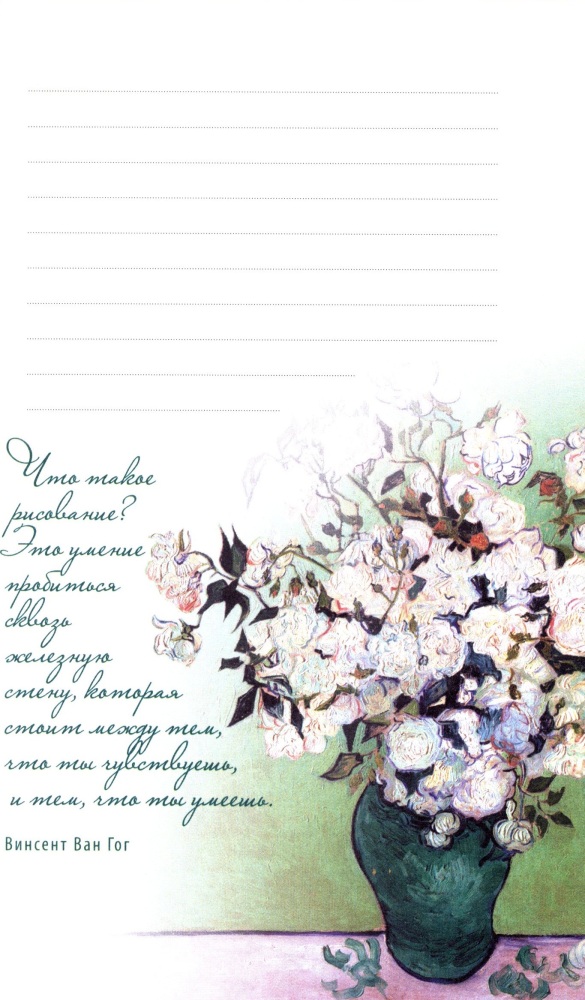 Что такое
рисование?
Это умение
пробиться
сквозь
железную
стену, которая
стоит между тем,
что ты чувствуешь,
и тем, что ты умеешь.
Винсент Ван Гог